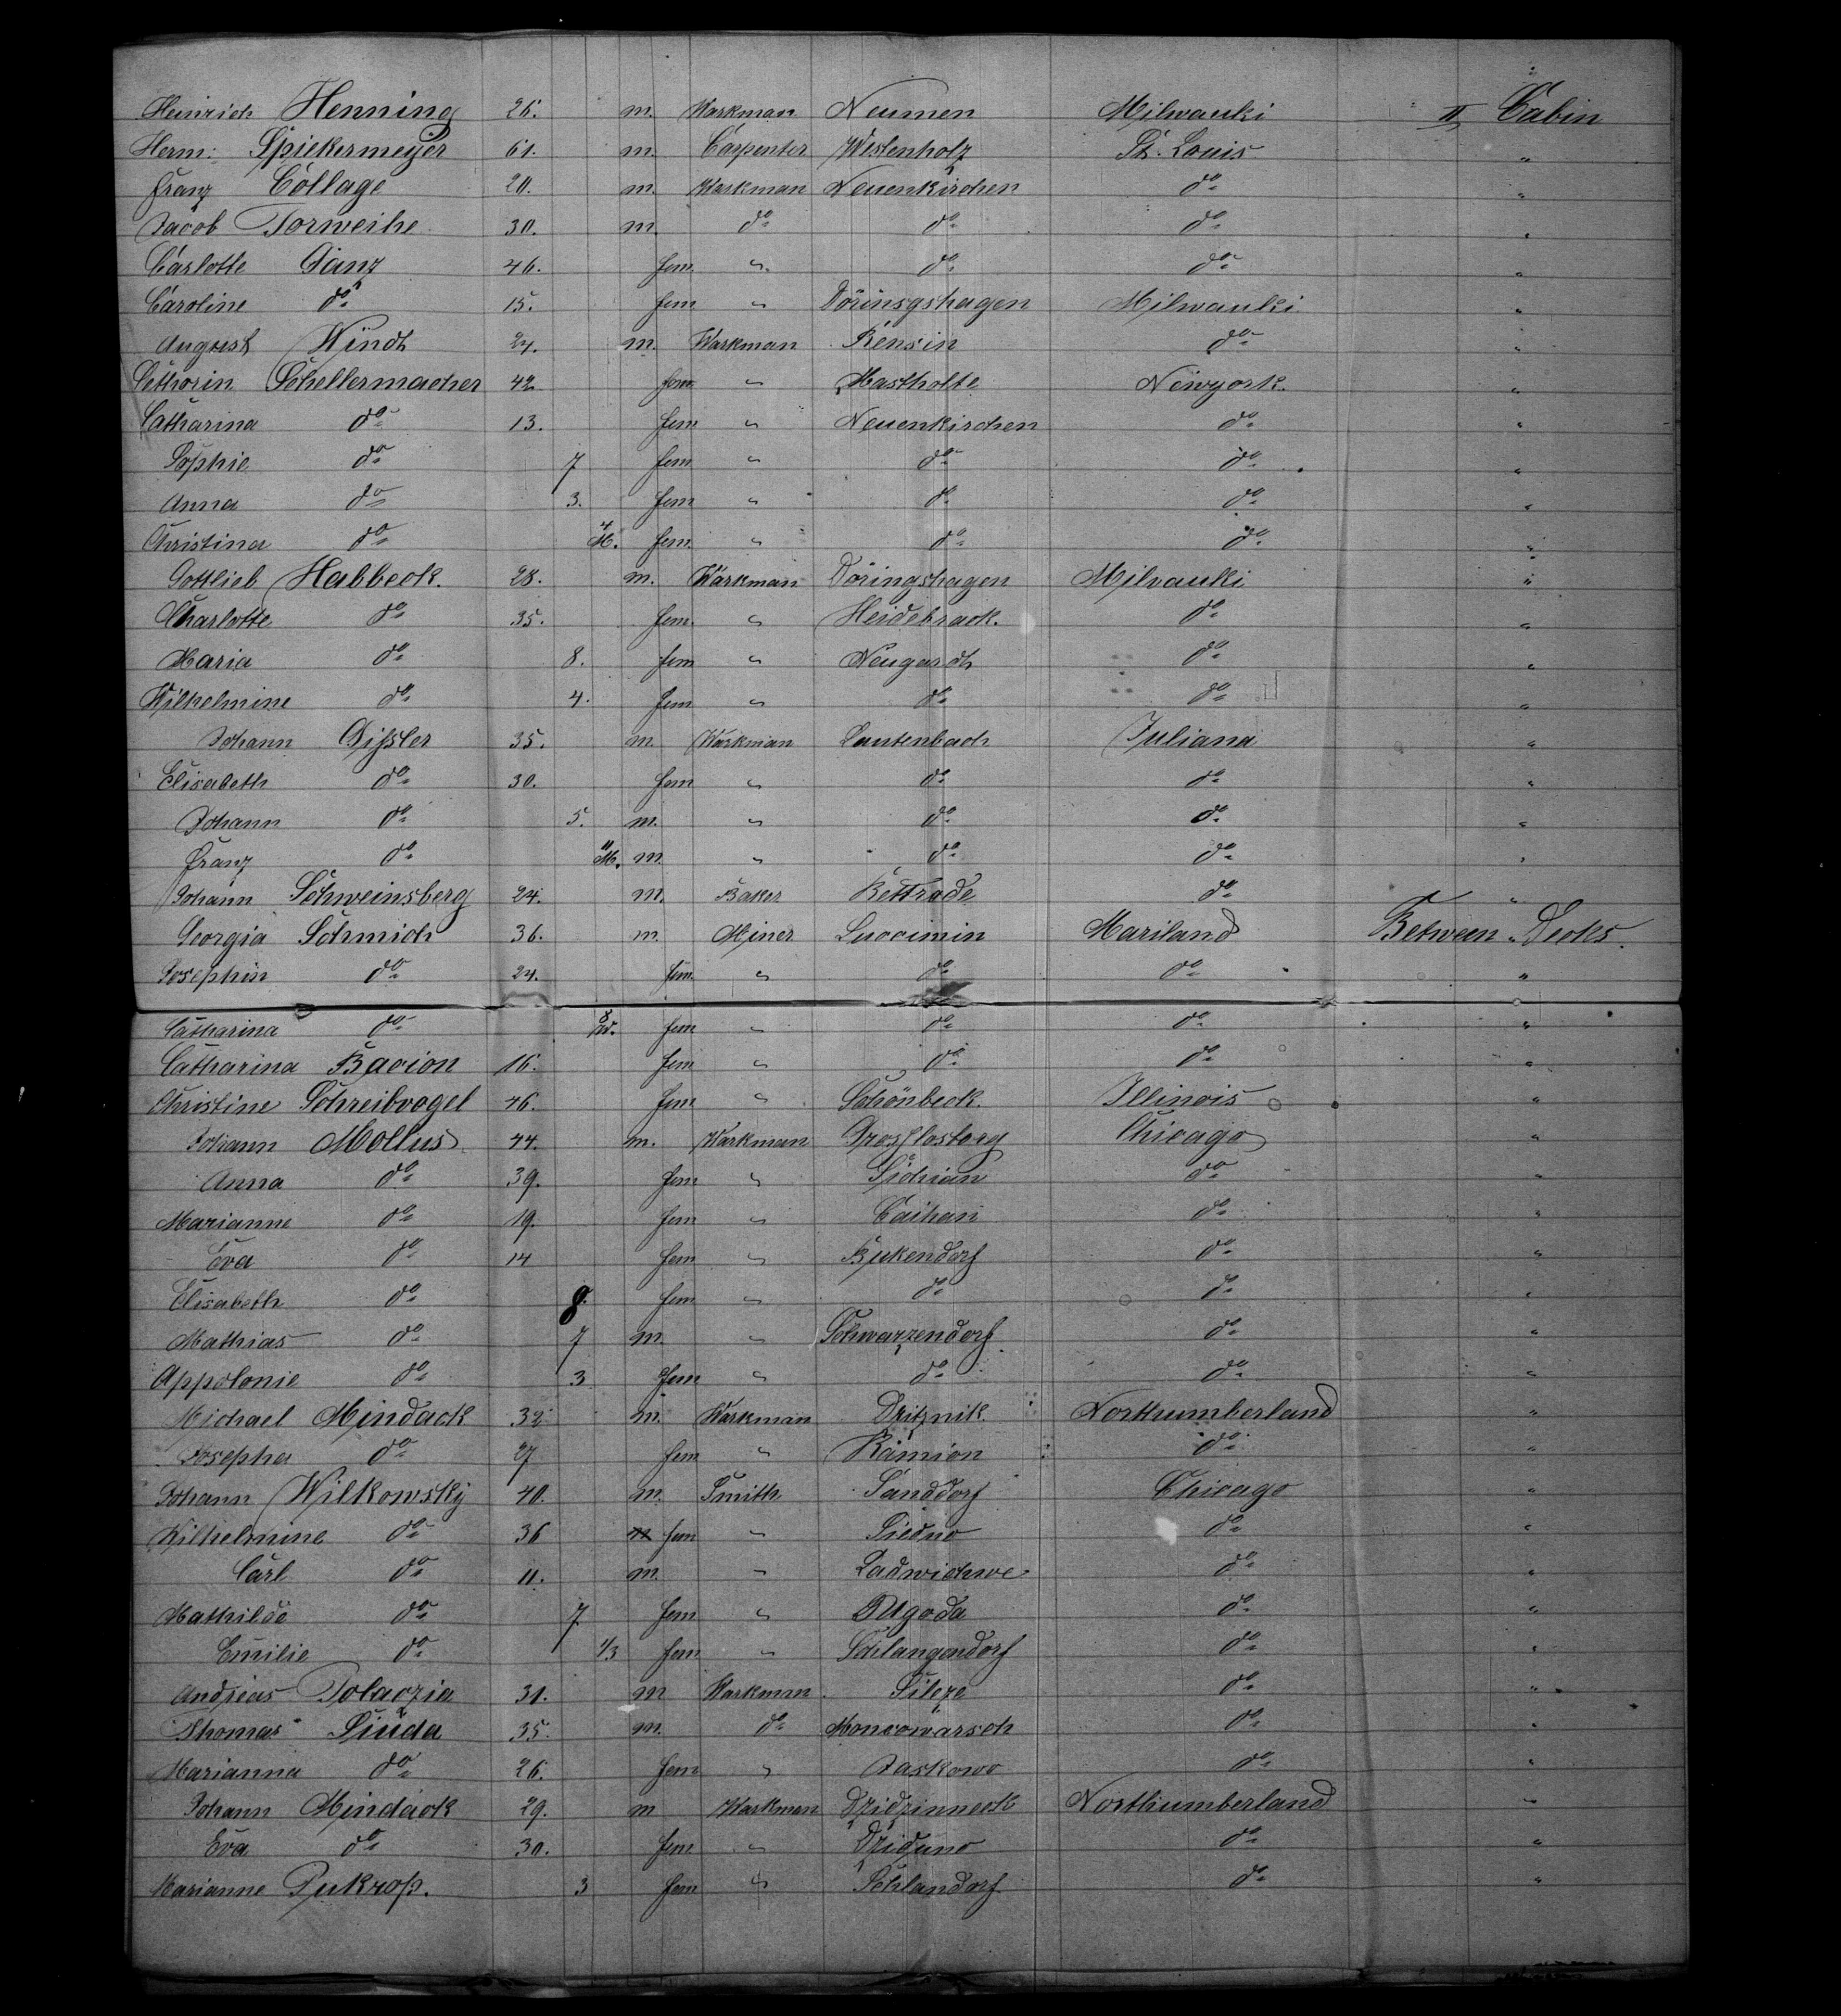 Heinrich Henning 26. m. Warkman Neumen Milwauki II Cabin
Herm: Spiekermeyer 61. m. Carpenter Westenholz St. Louis "
Franz Collage 20. m. Warkman Neuenkirchen do "
Jacob Torweihe 30. m. do do do "
Carlotte Ganz 46. fem " do do "
Caroline do 15. fem " Dörinsgshagen Milwauki "
August Windt 24. m. Warkman Rensin do "
Schellermacher 42 fem " Mastholte Newyork. "
Catharina do 13. fem " Neuenkirchen do "
Sophie do 7 fem " do do "
Anna do 3. fem " do do "
Christina do 4 M. fem. " do do "
Gottlieb Habbeck. 28. m. Warkman Döringshagen Milvauki "
Charlotte do 35. fem. " Heidebrack. do "
Maria do 8. fem " Neugardt do "
Wilhelmine do 4. fem " do do "
Johann Disster 35. m. Warkman Lautenbach Juliana "
Elisabeth do 30. fem " do do "
Johann do 5. m. " do do "
Franz do 11 M. m. " do do "
Johann Schweinsberg 24. m. Baker Bettrade do "
Georgia Schmich 36. m. Miner Luccimin Mariland Between Decks.
Josephin do 24. fem. " do do "
Catharina do 8 fem " do do "
Catharina Bacion 16. fem " do do "
Christine Schreibvogel 46. fem " Schönbeck. Illinois "
Johann Mollus 44. m. Warkman Chicago "
Anna do 39. fem " do "
Marianne do 19. fem " Caihan do "
Eva do 14 fem " Bukendorf do "
Elisabeth do 9. fem " do do "
Mathias do 7 m. " Schwarzendorf do "
Appolonie do 3 fem " do do "
Michael Mindack 32 m. Warkman Dzitznik Northumberland "
Josepha do 27 fem " Kamion do "
Johann Wilkowsky 40. m. Smith Sanddorf Chicago "
Wilhelmine do 36 fem " Siedno do "
Carl do 11. m. " Ladwichwe do "
Mathilde do 7 fem " Rugoda do "
Emilie do 1/3 fem " Schlangendorf do "
Andreas Polaczia 31. m Warkman Sileze do "
Thomas Siuda 35. m. do Moncowarsch do "
Marianna do 26. fem " Jaskowo do "
Johann Mindack 29. m Warkman Dzidzinneck Northumberland "
Eva do 30. fem " Dziduno do "
Marianne Pukrop. 3 fem " Schlandorf do "